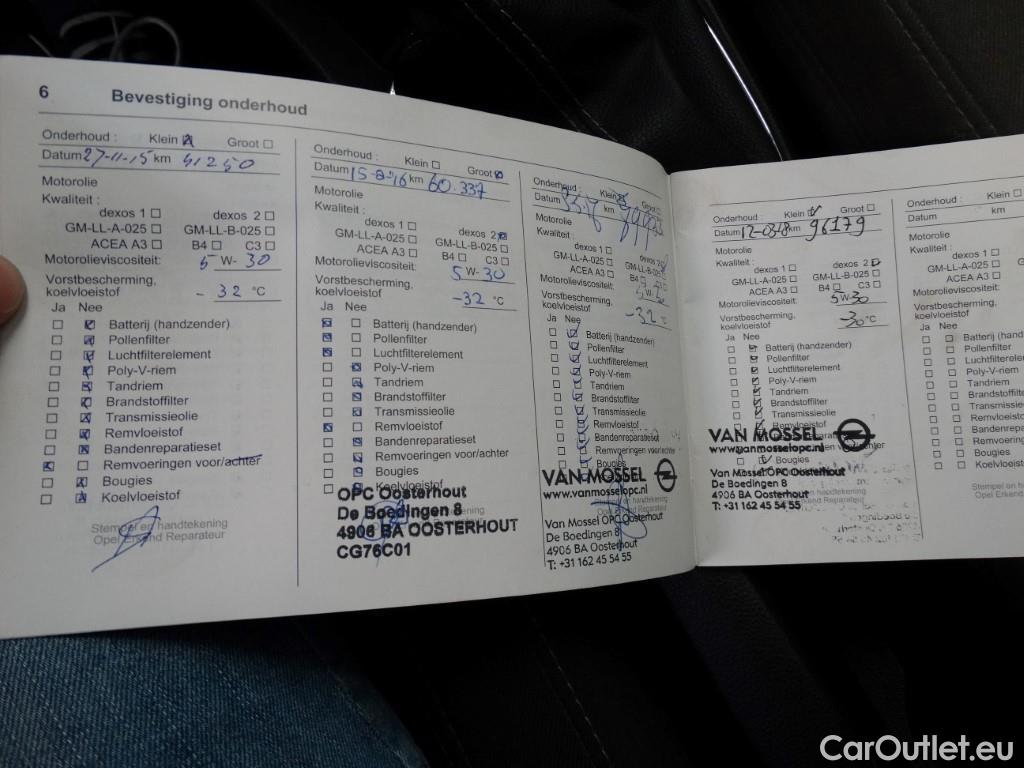 6 Bevestiging onderhoud
Onderhoud : Klein Groot
Datum 27-11-15 km 41250
Motorolie
Kwaliteit :
dexos 1 dexos 2
GM-LL-A-025 GM-LL-B-025
ACEA A3 B4 C3
Motorolieviscositeit: 5 W- 30
Vorstbescherming,
koelvloeistof - 32 °C
Ja Nee
Batterij (handzender)
Pollenfilter
Luchtfilterelement
Poly-V-riem
Tandriem
Brandstoffilter
Transmissieolie
Remvloeistof
Bandenreparatieset
Remvoeringen voor/achter
Bougies
Koelvloeistof
Stempel en handtekening
Opel Erkend Reparateur
Onderhoud : Klein Groot
Datum 15-8-'16 km 60.337
Motorolie
Kwaliteit :
dexos 1 dexos 2
GM-LL-A-025 GM-LL-B-025
ACEA A3 B4 C3
Motorolieviscositeit: 5 W-30
Vorstbescherming,
koelvloeistof -32 °C
Ja Nee
Batterij (handzender)
Pollenfilter
Luchtfilterelement
Poly-V-riem
Tandriem
Brandstoffilter
Transmissieolie
Remvloeistof
Bandenreparatieset
Remvoeringen voor/achter
Bougies
Koelvloeistof
OPC Oosterhout
De Boedingen 8
4906 BA OOSTERHOUT
CG76C01
Onderhoud : Klein Groot
Datum km
Motorolie
Kwaliteit :
dexos 1 dexos 2
GM-LL-A-025 GM-LL-B-025
ACEA A3 B4
Motorolieviscositeit: 5 W-30
Vorstbescherming,
koelvloeistof -32 °C
Ja Nee
Batterij (handzender)
Pollenfilter
Luchtfilterelement
Poly-V-riem
Tandriem
Brandstoffilter
Transmissieolie
Remvloeistof
Bandenreparatieset
Remvoeringen voor/achter
Bougies
VAN MOSSEL
www.vanmosselopc.nl
Van Mossel OPC Oosterhout
De Boedingen 8
4906 BA Oosterhout
T: +31 162 45 54 55
Onderhoud : Klein Groot
Datum 12-03-18 km 96179
Motorolie
Kwaliteit :
dexos 1 dexos 2
GM-LL-A-025 GM-LL-B-025
ACEA A3 B4 C3
Motorolieviscositeit: 5 W-30
Vorstbescherming,
koelvloeistof -30 °C
Ja Nee
Batterij (handzender)
Pollenfilter
Luchtfilterelement
Poly-V-riem
Tandriem
Brandstoffilter
Transmissieolie
Remvloeistof
VAN MOSSEL
www.vanmosselopc.nl
Bougies
Van Mossel OPC Oosterhout
De Boedingen 8
4906 BA Oosterhout
T: +31 162 45 54 55
Onderhoud : Klein
Datum km
Motorolie
Kwaliteit :
dexos 1
GM-LL-A-025
ACEA A3
Motorolieviscositeit:
Vorstbescherming,
koelvloeistof
Ja Nee
Batterij (handz
Pollenfilter
Luchtfilterelem
Poly-V-riem
Tandriem
Brandstoffilter
Transmissieolie
Remvloeistof
Bandenrepara
Remvoeringen
Bougies
Koelvloeistof
Stempel en han
Opel Erkend R
CarOutlet.eu